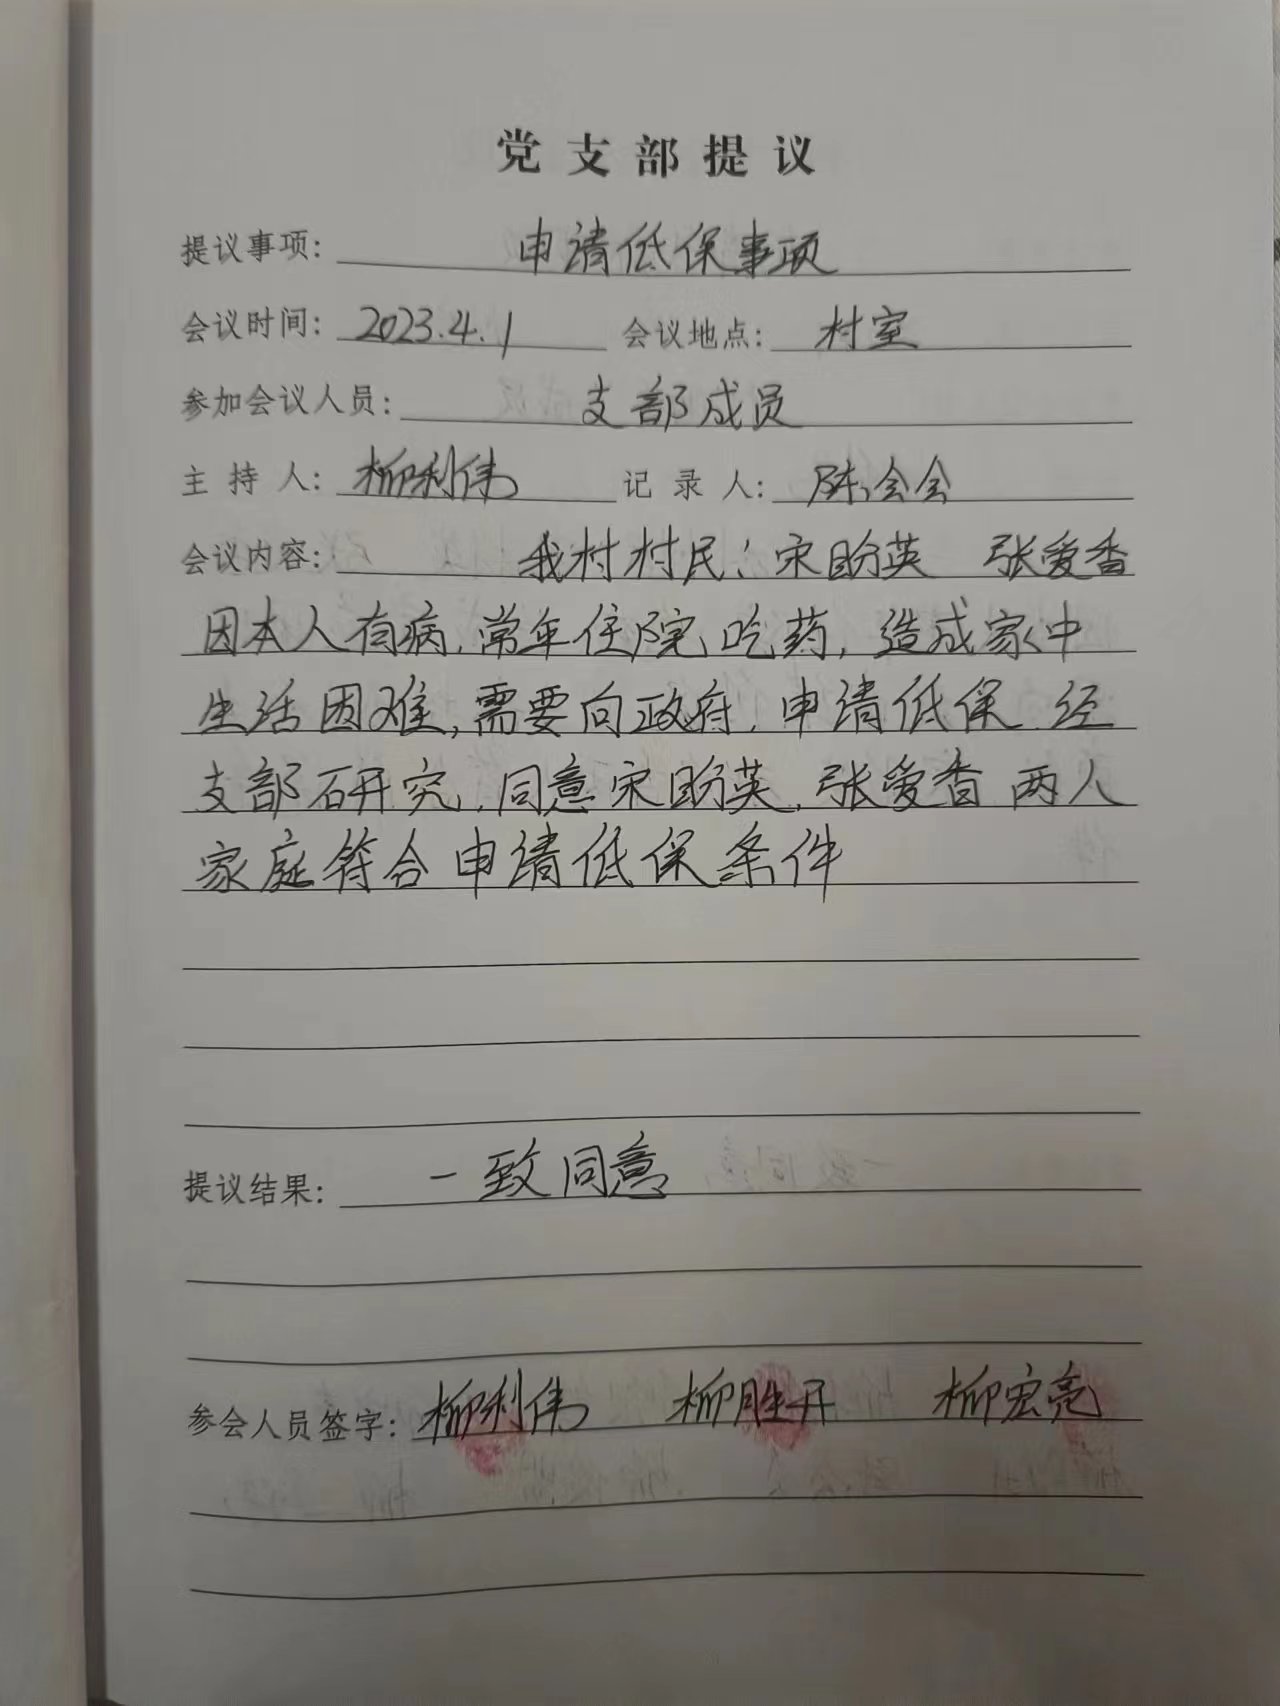 党支部提议
提议事项: 申请低保事项
会议时间: 2023.4.1 会议地点: 村室
参加会议人员: 支部成员
主持人: 柳利伟 记录人: 陈会会
会议内容: 我村村民: 宋盼英 张爱香
因本人有病,常年住院吃药,造成家中
生活困难,需要向政府,申请低保.经
支部研究,同意宋盼英,张爱香两人
家庭符合申请低保条件
提议结果: 一致同意
参会人员签字: 柳利伟 柳胜开 柳宏亮